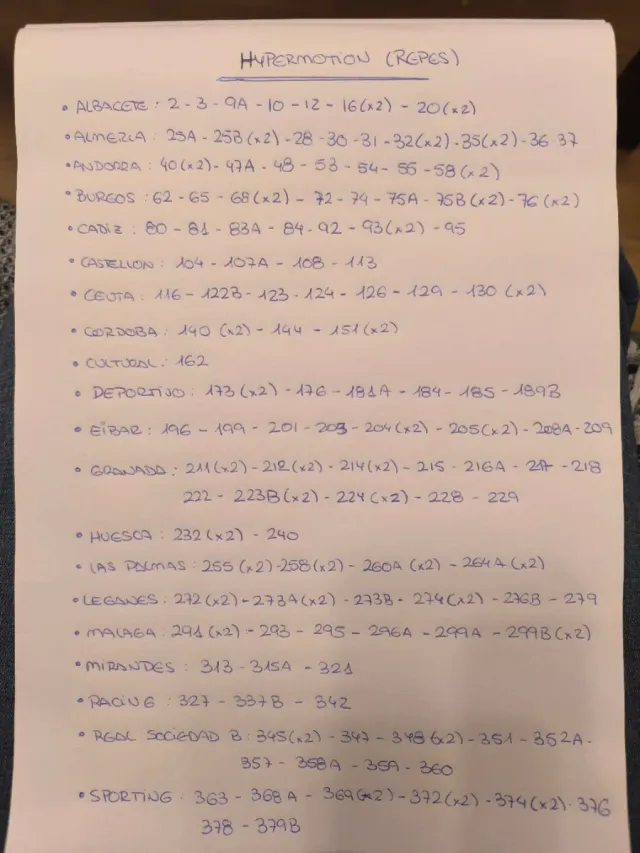 HYPERMOTION (REPES)
• ALBACETE : 2 - 3 - 9A - 10 - 12 - 16(x2) - 20(x2)
• ALMERIA : 25A - 25B(x2) - 28 - 30 - 31 - 32(x2) - 35(x2) - 36 37
• ANDORRA : 40(x2) - 47A - 48 - 53 - 54 - 55 - 58(x2)
• BURGOS : 62 - 65 - 68(x2) - 72 - 74 - 75A - 75B(x2) - 76(x2)
• CADIZ : 80 - 81 - 83A - 84 - 92 - 93(x2) - 95
• CASTELLON : 104 - 107A - 108 - 113
• CEUTA : 116 - 122B - 123 - 124 - 126 - 129 - 130 (x2)
• CORDOBA : 140 (x2) - 144 - 151(x2)
• CULTURAL : 162
• DEPORTIVO : 173(x2) - 176 - 181A - 184 - 185 - 189B
• EIBAR : 196 - 199 - 201 - 203 - 204(x2) - 205(x2) - 208A - 209
• GRANADA : 211(x2) - 212(x2) - 214(x2) - 215 - 216A - 217 - 218
222 - 223B(x2) - 224(x2) - 228 - 229
• HUESCA : 232(x2) - 240
• LAS PALMAS : 255(x2) - 258(x2) - 260A (x2) - 264A(x2)
• LEGANES : 272(x2) - 273A(x2) - 273B - 274(x2) - 276B - 279
• MALAGA : 291(x2) - 293 - 295 - 296A - 299A - 299B(x2)
• MIRANDES : 313 - 315A - 321
• RACING : 327 - 337B - 342
• REAL SOCIEDAD B : 345(x2) - 347 - 348(x2) - 351 - 352A -
357 - 358A - 359 - 360
• SPORTING : 363 - 368A - 369(x2) - 372(x2) - 374(x2) - 376
378 - 379B